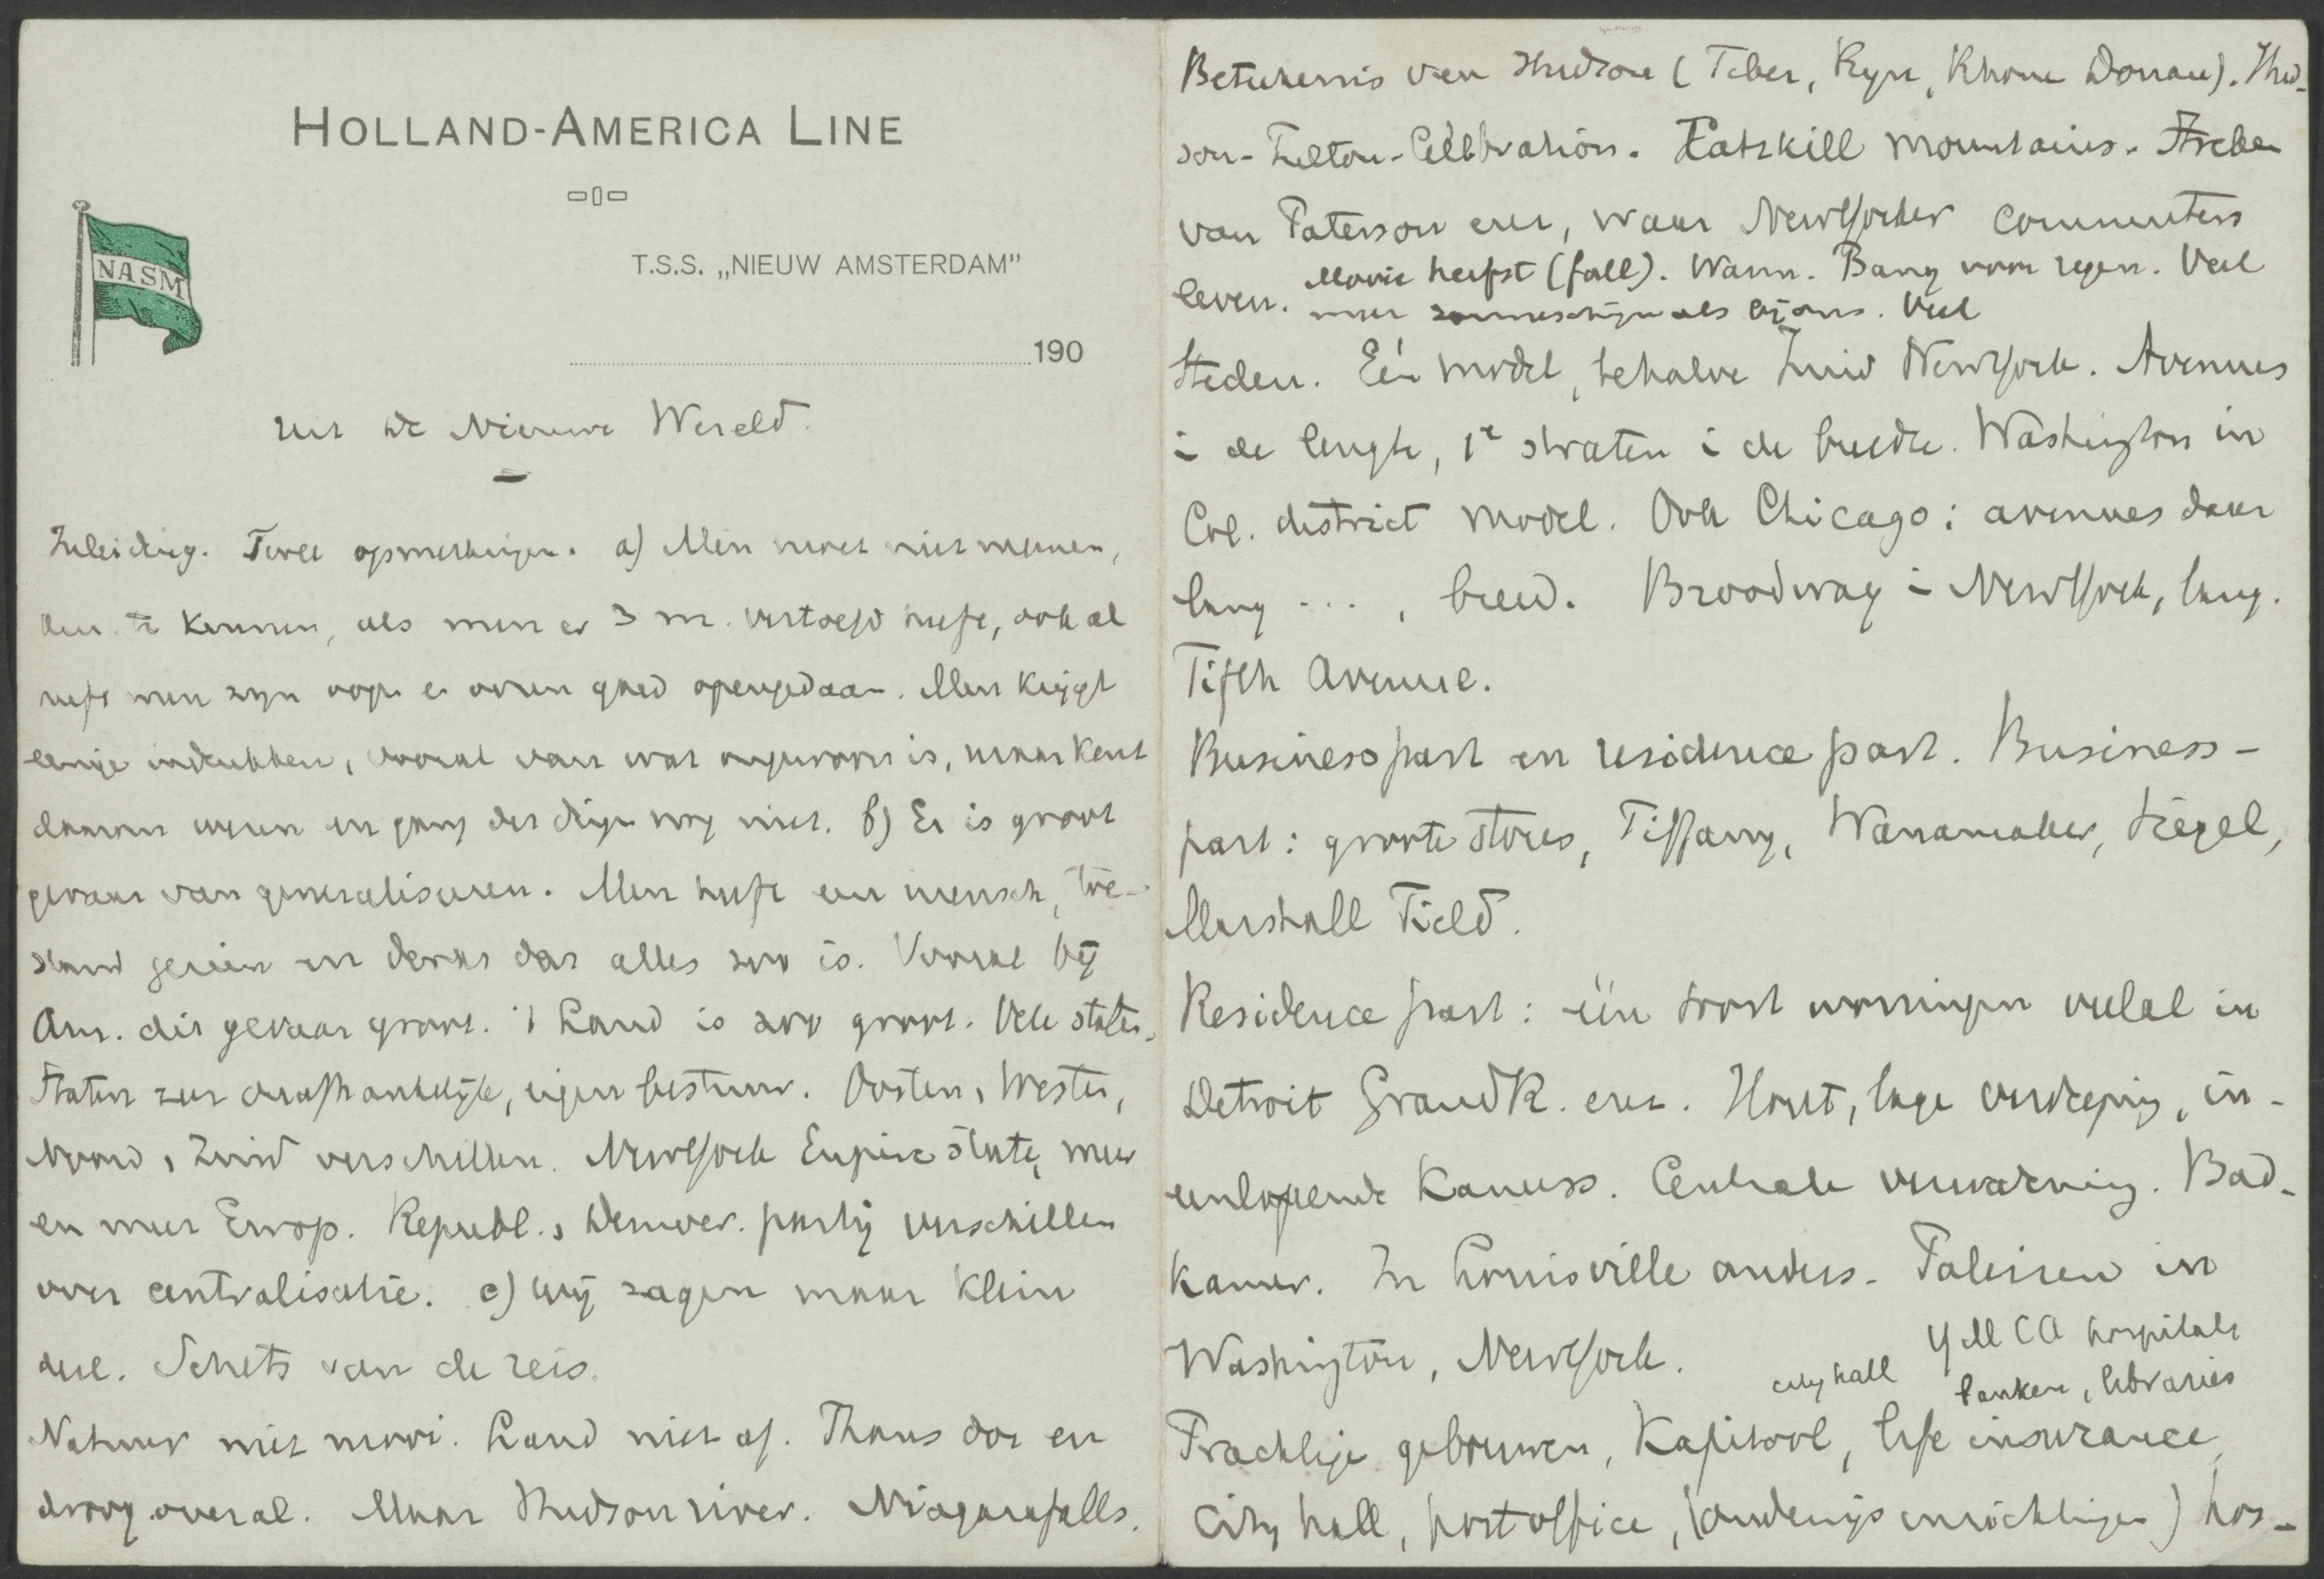 HOLLAND-AMERICA LINE
NASM
T.S.S. „NIEUW AMSTERDAM"
190
Uit de Nieuwe Wereld.
Inleiding. Twee opmerkingen. a) Men moet niet meenen,
Am. te kennen, als men er 3 m. vertoefd heeft, ook al
heeft men zijn oogen en ooren goed opengedaan. Men krijgt
eenige indrukken, vooral van wat ongewoon is, maar kent
daarom wezen en gang der dingen nog niet. b) Er is groot
gevaar van generaliseeren. Men heeft een mensch, toe-
stand gezien en denkt dat alles zoo is. Vooral bij
Am. dit gevaar groot. 't Land is zoo groot. Vele staten.
Staten zeer onafhankelijk, eigen bestuur. Oosten, Westen,
Noord, Zuid verschillen. NewYork Empire State, meer
en meer Europ. Republ., Democr. partij verschillen
over centralisatie. c) Wij zagen maar klein
deel. Schets van de reis.
Natuur niet mooi. Land niet af. Thans dor en
droog overal. Maar Hudsonriver. Niagarafalls.
Beteekenis van Hudson (Tiber, Rijn, Rhone Donau). Hud-
son-Fulton-Celebration. Catskill mountains.
van Paterson enz, waar NewYorker commuters
leven. Mooie herfst (fall). Warm. Bang voor regen. Veel
meer zonneschijn als bij ons. Veel
Steden. Eén model, behalve Zuid NewYork. Avenues
i de lengte, 1e straten i de breedte. Washington in
Col. district model. Ook Chicago: avenues daar
lang ... , breed. Broodway i NewYork, lang.
Fifth Avenue.
Businesspart en residence part. Business-
part: groote stores, Tiffany, Wanamaker, Siegel,
Marshall Field.
Residence part: één soort woningen veelal in
Detroit GrandR. enz. Hout, lage verdieping, in-
eenloopende kamers. Centrale verwarming. Bad-
kamer. In Louisville anders. Paleizen in
Washington, NewYork.
city hall YMCA hospitals
banken, libraries
Prachtige gebouwen, Kapitool, life insurance,
City hall, post office, (onderwijs inrichtingen) hos-